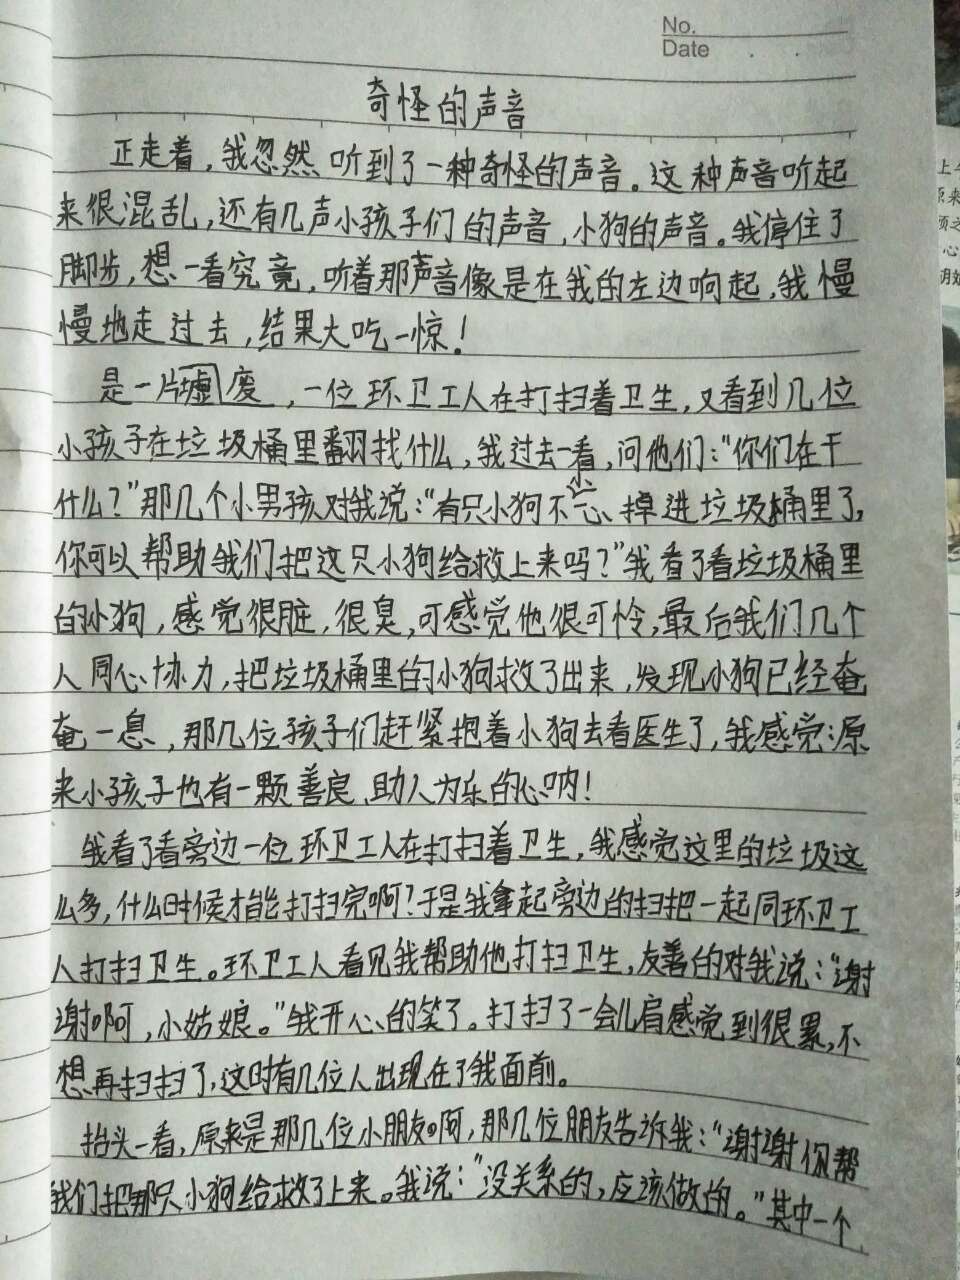 No.
Date
奇怪的声音
正走着，我忽然听到了一种奇怪的声音。这种声音听起
来很混乱，还有几声小孩子们的声音，小狗的声音。我停住了
脚步，想一看究竟，听着那声音像是在我的左边响起，我慢
慢地走过去，结果大吃一惊！
是一片墟废，一位环卫工人在打扫着卫生，又看到几位
小孩子在垃圾桶里翻找什么，我过去一看，问他们：“你们在干
什么？”那几个小男孩对我说：“有只小狗不小心掉进垃圾桶里了，
你可以帮助我们把这只小狗给救上来吗？”我看了看垃圾桶里
的小狗，感觉很脏，很臭，可感觉他很可怜，最后我们几个
人同心协力，把垃圾桶里的小狗救了出来，发现小狗已经奄
奄一息，那几位孩子们赶紧抱着小狗去看医生了，我感觉：原
来小孩子也有一颗善良，助人为乐的心呐！
我看了看旁边一位环卫工人在打扫着卫生，我感觉这里的垃圾这
么多，什么时候才能打扫完啊？于是我拿起旁边的扫把一起同环卫工
人打扫卫生。环卫工人看见我帮助他打扫卫生，友善的对我说：“谢
谢啊，小姑娘。”我开心的笑了。打扫了一会儿肩感觉到很累，不
想再扫扫了，这时有几位人出现在了我面前。
抬头一看，原来是那几位小朋友啊，那几位朋友告诉我：“谢谢你帮
我们把那只小狗给救了上来。我说：“没关系的，应该做的。”其中一个